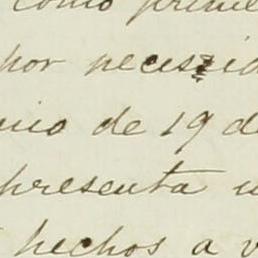 como prime
por necesid
nio de 19 d
presenta u
hechos a v